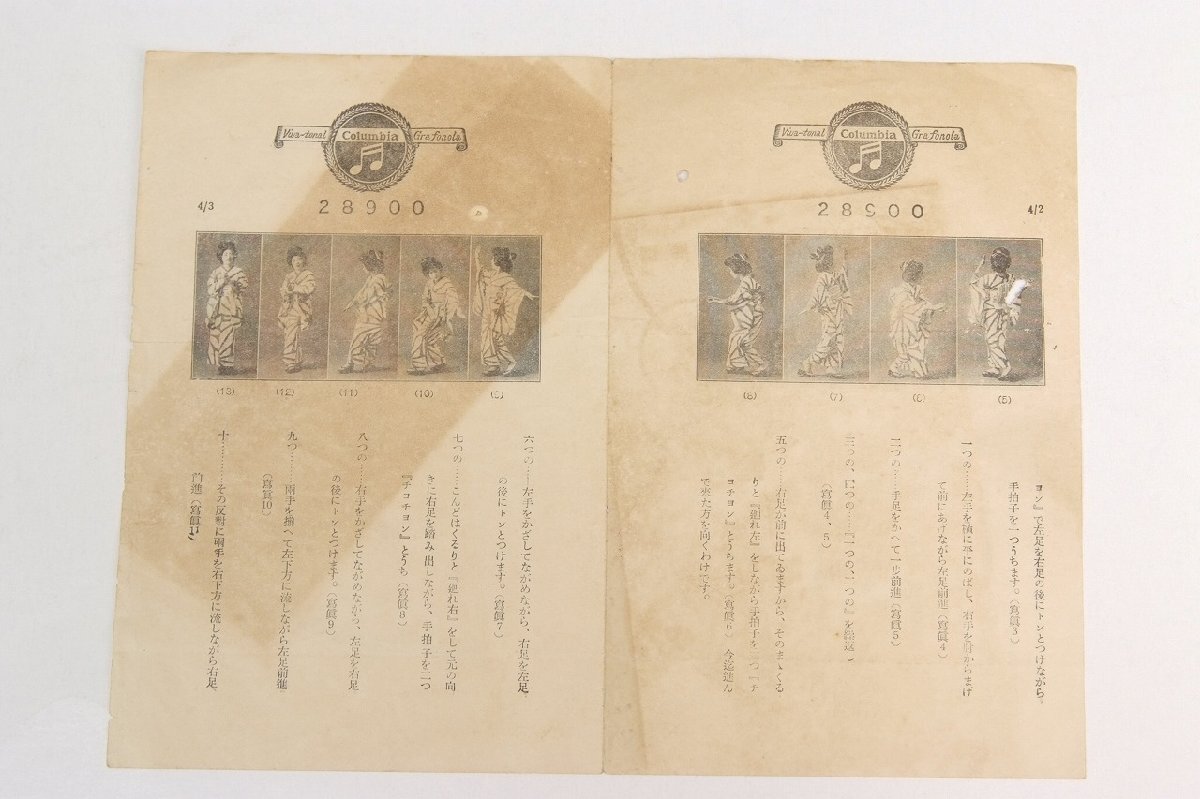 Viva-tonal Columbia Grafonola
28900
4/2
(5)
(6)
(7)
(8)
ヨン』で左足を右足の後にトンとつけながら、
手拍子を一つうちます。(寫眞3)
一つの……左手を横に平にのばし、右手を肘からまげ
て前にあげながら左足前進(寫眞4)
二つの……手足をかへて一歩前進(寫眞5)
三つの、四つの……『一つの、二つの』を繰返し
(寫眞4、5)
五つの……右足が前に出てゐますから、そのまゝくる
りと『廻れ左』をしながら手拍子を二つ『チ
ヨチヨン』とうちます。(寫眞6)今迄進ん
で來た方を向くわけです。
Viva-tonal Columbia Grafonola
4/3
28900
(9)
(10)
(11)
(12)
(13)
六つの……左手をかざしてながめながら、右足を左足
の後にトンとつけます。(寫眞7)
七つの……こんどはくるりと『廻れ右』をして元の向
きに右足を踏み出しながら、手拍子を二つ
『チヨチヨン』とうち(寫眞8)
八つの……右手をかざしてながめながら、左足を右足
の後にトンとつけます。(寫眞9)
九つ……兩手を揃へて左下方に流しながら左足前進
(寫眞10)
十……その反對に兩手を右下方に流しながら右足
前進(寫眞11)